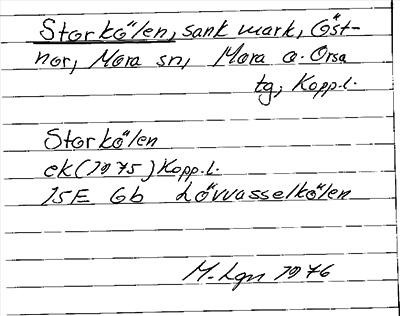 Storkölen, sank mark, Öst-
nor, Mora sn, Mora o. Orsa
tg, Kopp.l.
Storkölen
ek(1975)Kopp.l.
15E 6b Lövvasselkölen
M. Lgn 1976